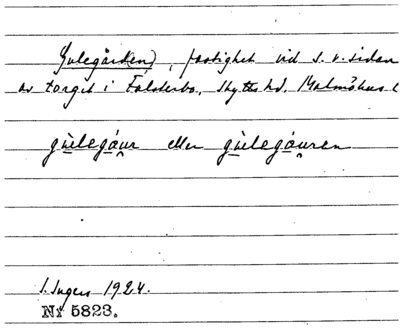 Gulegård(en), fastighet vid s. v. sidan
av torget i Falsterbo, Skytts hd, Malmöhus l
gùlegá̀ur eller gùlegá̀uren
I. Ingers 1924.
Nr 5823.